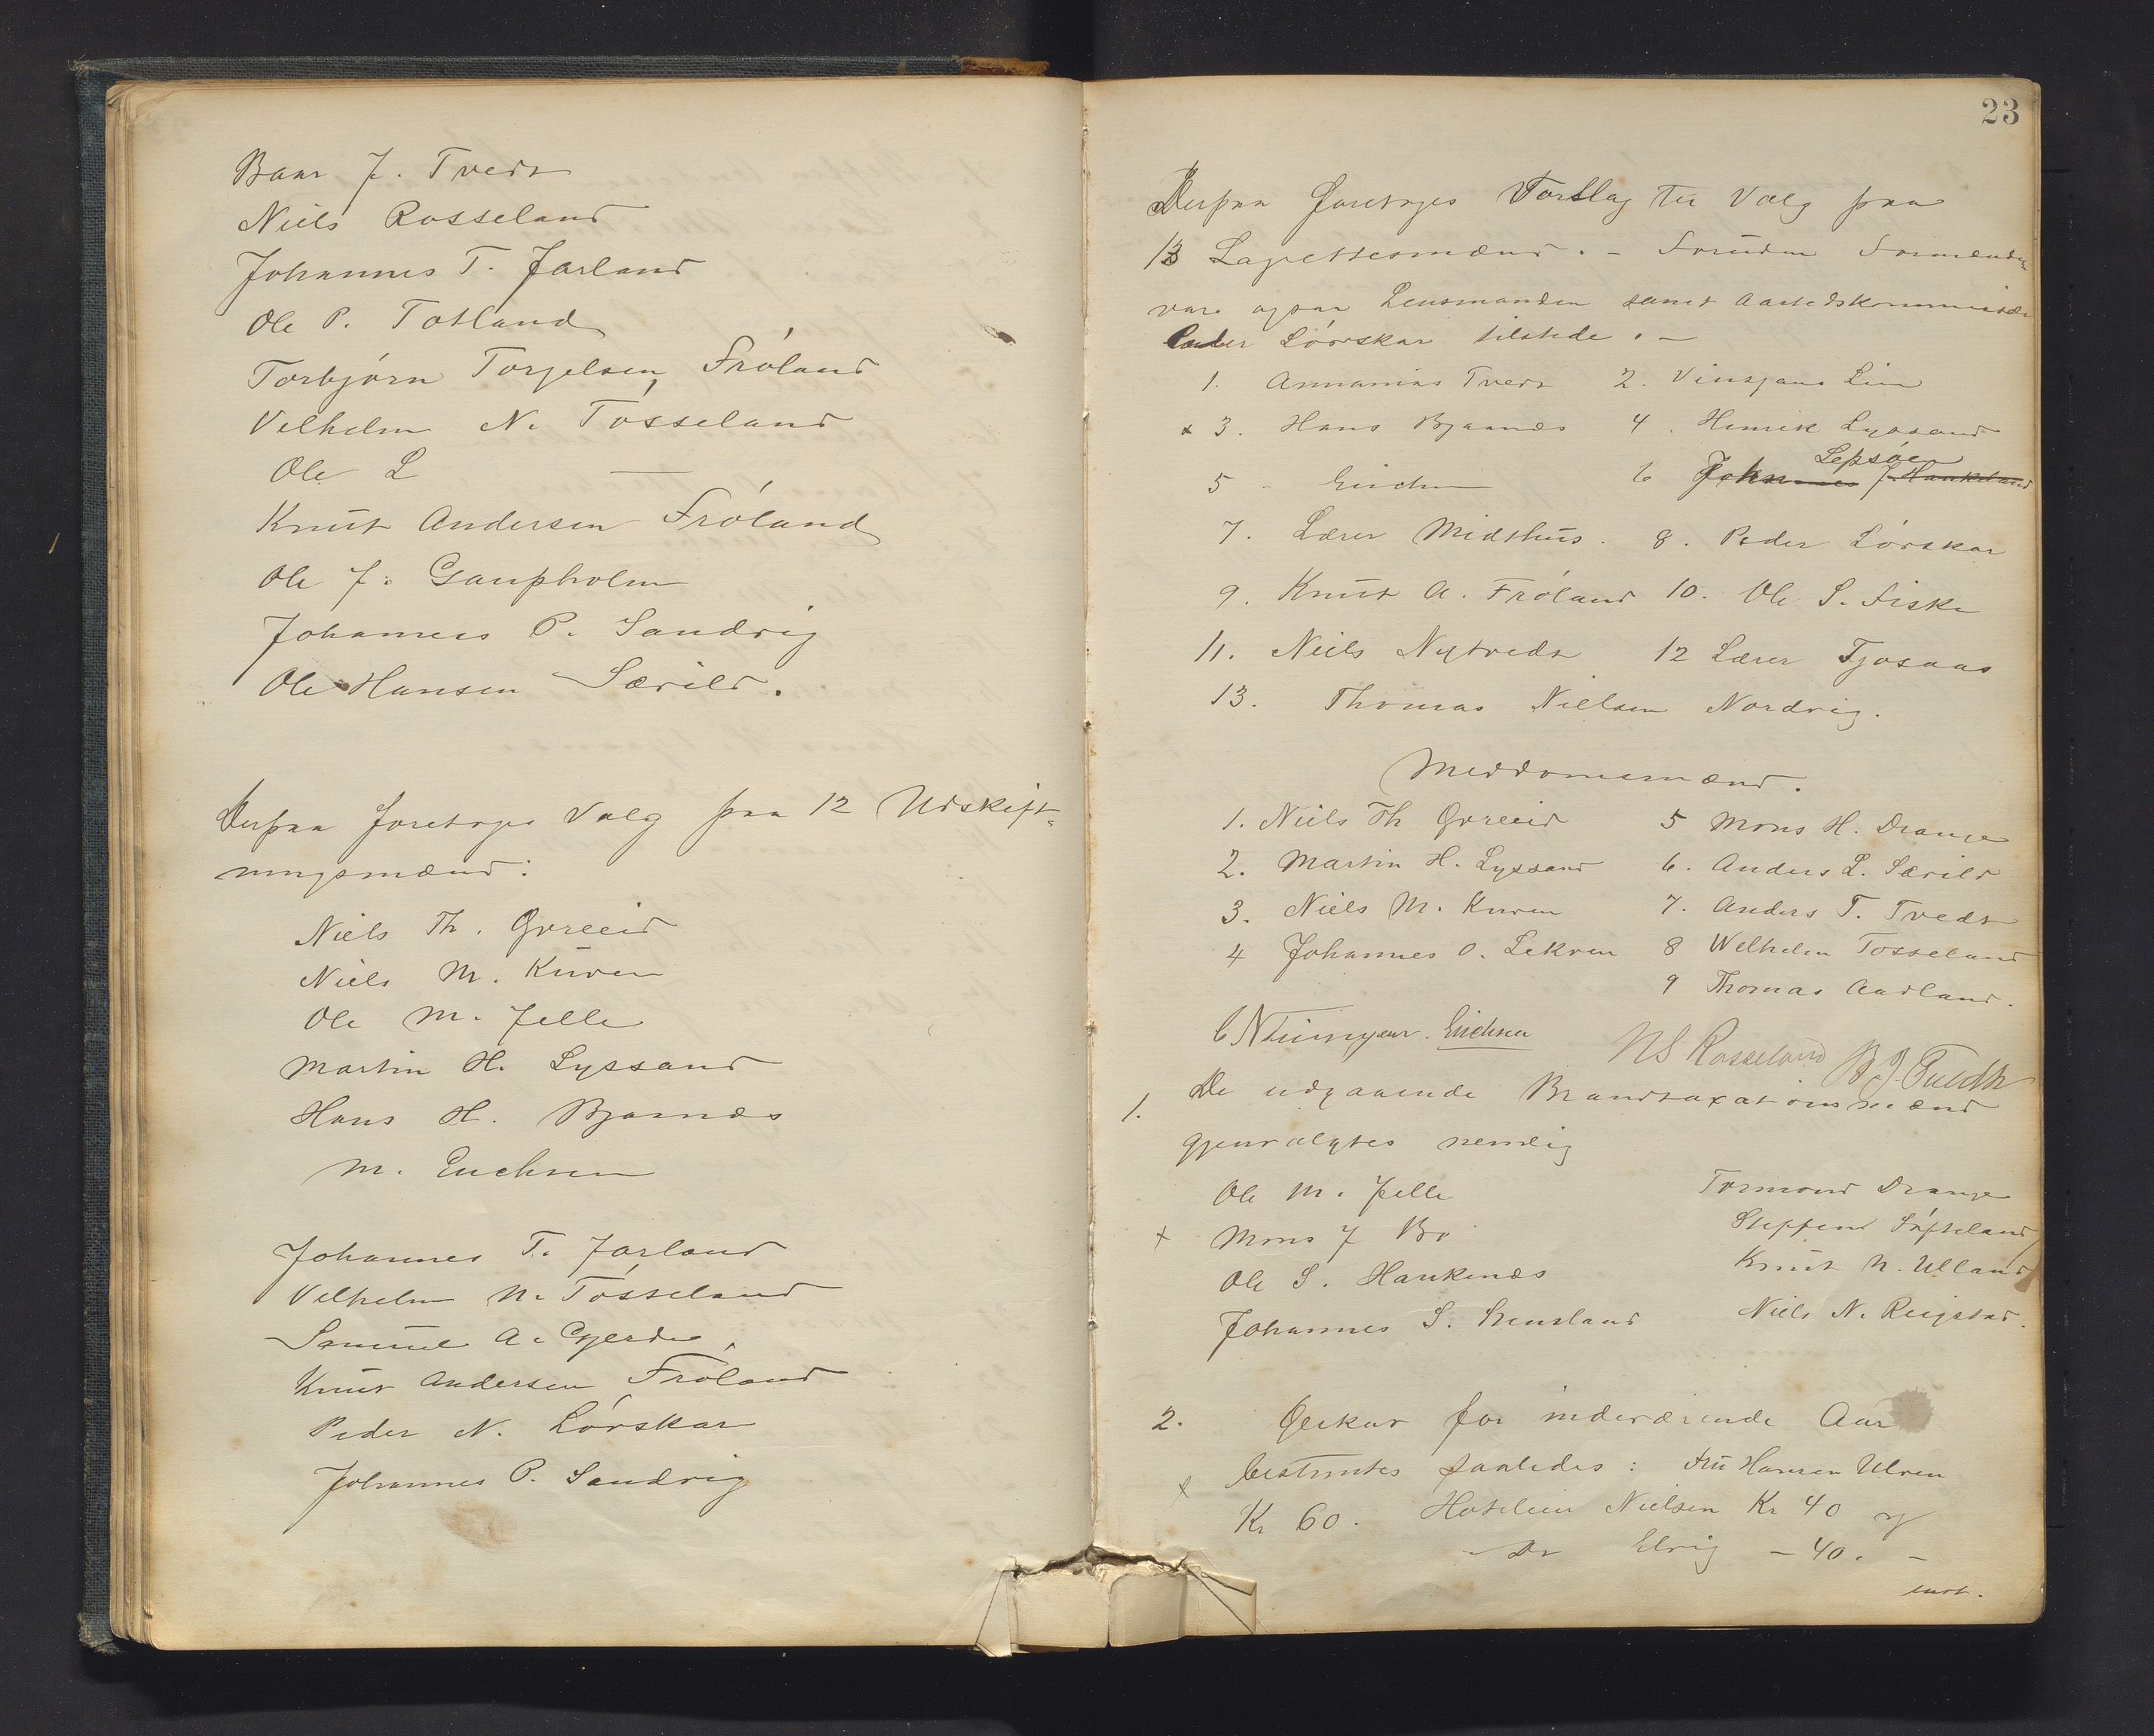 Baar J. Tvedt
Niels Rosseland
Johannes T. Jarland
Ole P. Totland
Torbjørn Torgelsen Frøland
Vilhelm N. Tøsseland
Ole L —
Knut Andersen Frøland
Ole J. Gaupholm
Johannes P. Sandvig
Ole Hansen Særild.
Derpaa foretoges Valg paa 12 Udskift-
ningsmænd:
Niels Th. Gvreeid
Niels M. Kuven
Ole M. Jelle
Martin H. Lyssand
Hans H. Bjaanæs
M. Erichsen
Johannes T. Jarland
Vilhelm N. Tøsseland
Samuel A. Gjerde
Knut Andersen Frøland
Peder N. Lørskar
Johannes P. Sandvig
23
Derpaa foretoges Forslag til Valg paa
13 Lagrettesmænd. – Foruden Formændene
var ogsaa Lensmanden samt
Peder Løvskar tilstede. –
1. Annanias Tvedt 2. Lien
x 3. Hans Bjaanæs 4. Henrik Lyssand
5 - Erichsen 6 Johannes J. Haukeland Lepsøen
7. Lærer Midthus. 8. Peder Lørskar
9. Knut A. Frøland 10. Ole S. Fiske
11. Niels Nytvedt 12 Lærer Tjosaas
13. Thomas Nielsen Nordvig.
Meddomsmænd.
1. Niels Th Gvreeid 5 Mons H. Drange
2. Martin H. Lyssand 6. Anders L. Særild
3. Niels M. Kuven 7. Anders T. Tvedt
4 Johannes O. Lekven 8 Welhelm Tøsseland
9 Thomas Aadland.
Erichsen NS Rosseland B.J. Tvedt
1. De udgaaende Brandtaxationsmænd
gjenvalgtes nemlig
Ole M. Jelle Tormond Drange
x Mons J Bø Steffen Søfteland
Ole S. Haukenæs Knut N. Ulland
Johannes S. Svensland Niels N. Reigstad.
2. for indeværende Aar
x bestemtes saaledes: Fru Hansen Ulven
Kr 60. Nielsen Kr 40 og
Dr Elvig – 40. –